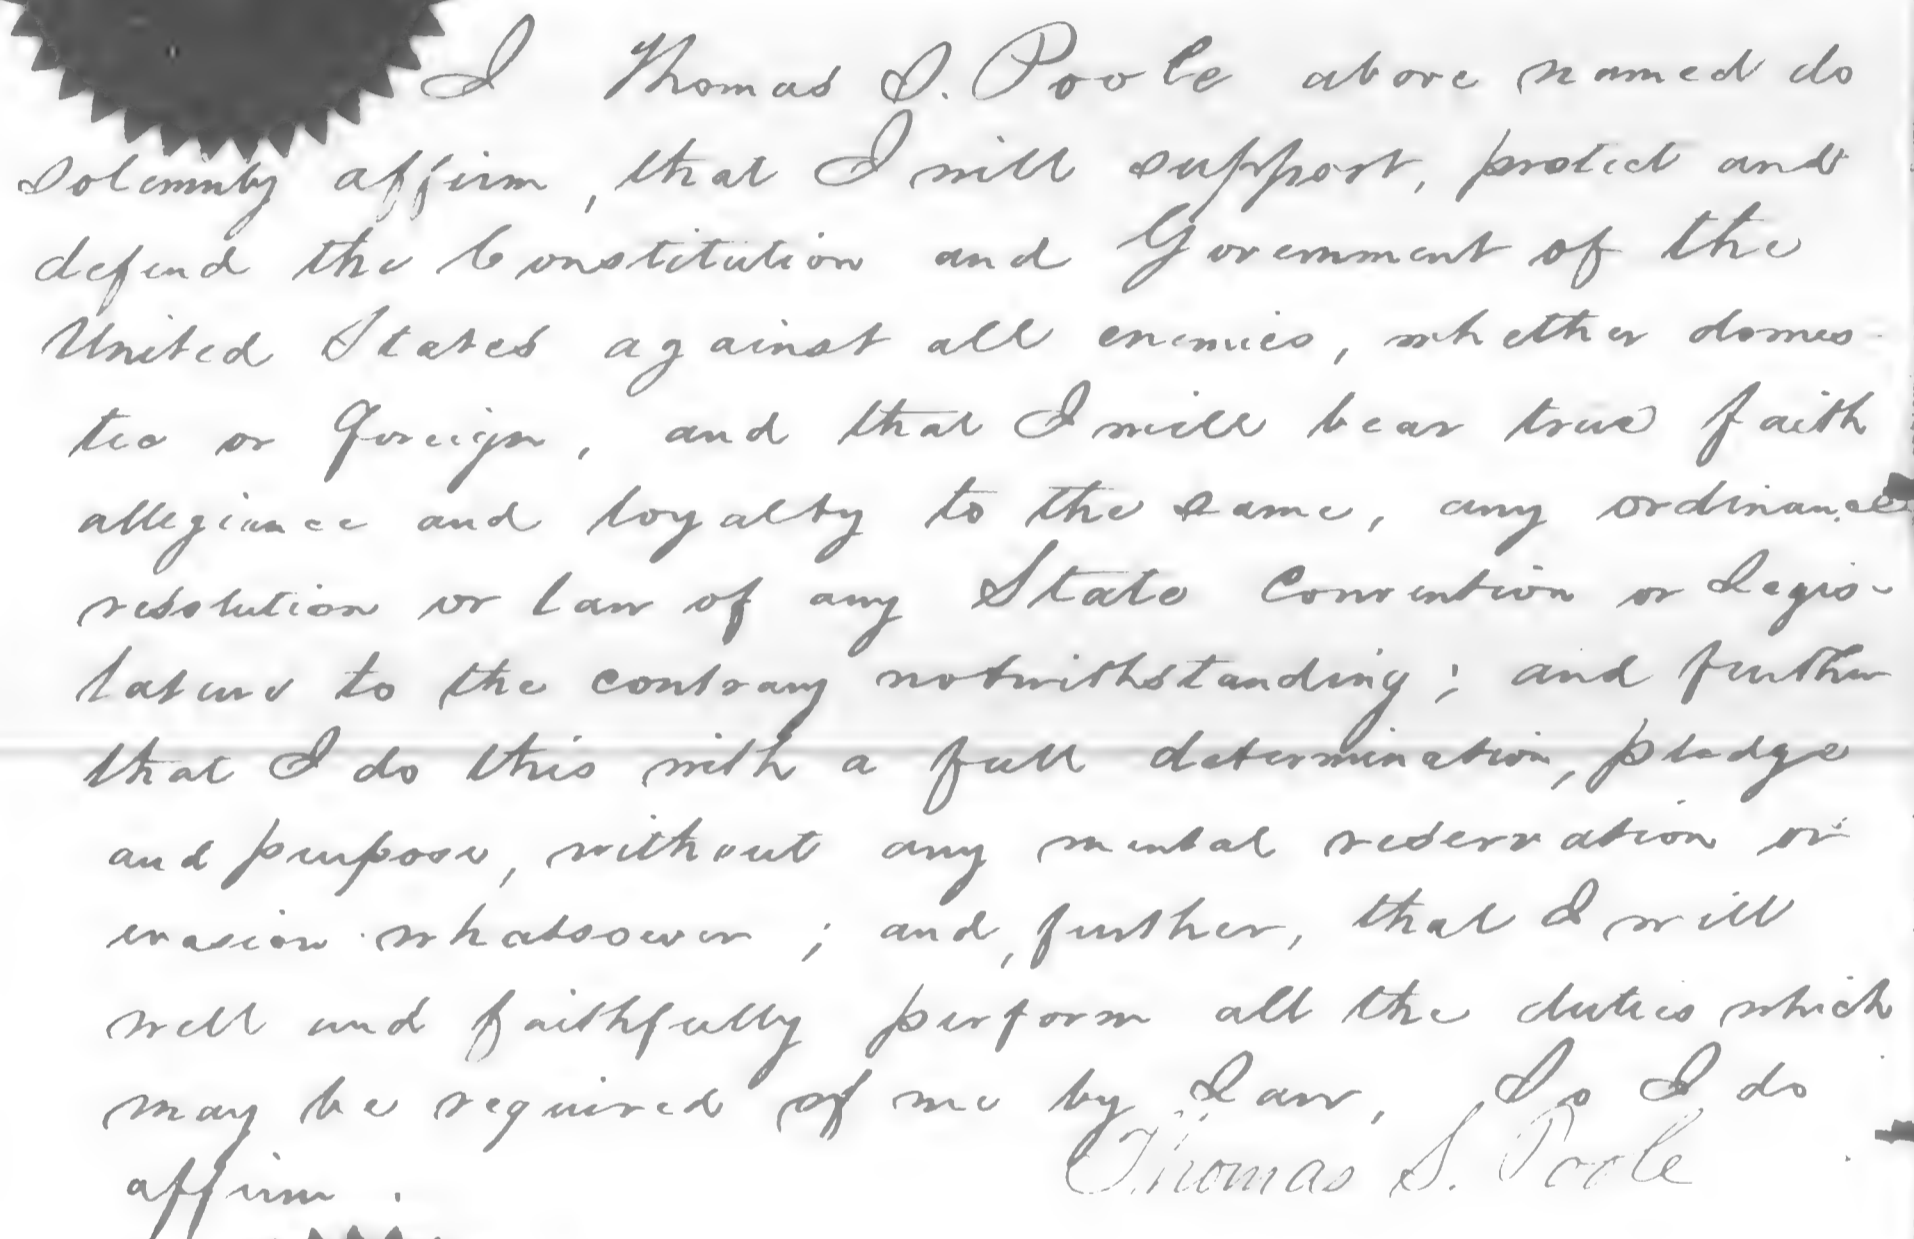 I Thomas S. Poole above named do
solemnly affirm, that I will support, protect and
defend the Constitution and Government of the
United States against all enemies, whether domes-
tic or foreign, and that I will bear true faith
allegiance and loyalty to the same, any ordinance
resolution or law of any State Convention or Legis-
lature to the contrary notwithstanding; and further
that I do this with a full determination, pledge
and purpose, without any mental reservation or
evasion whatsoever; and, further, that I will
well and faithfully perform all the duties which
may be required of me by Law, So I do
affirm.
Thomas S. Poole